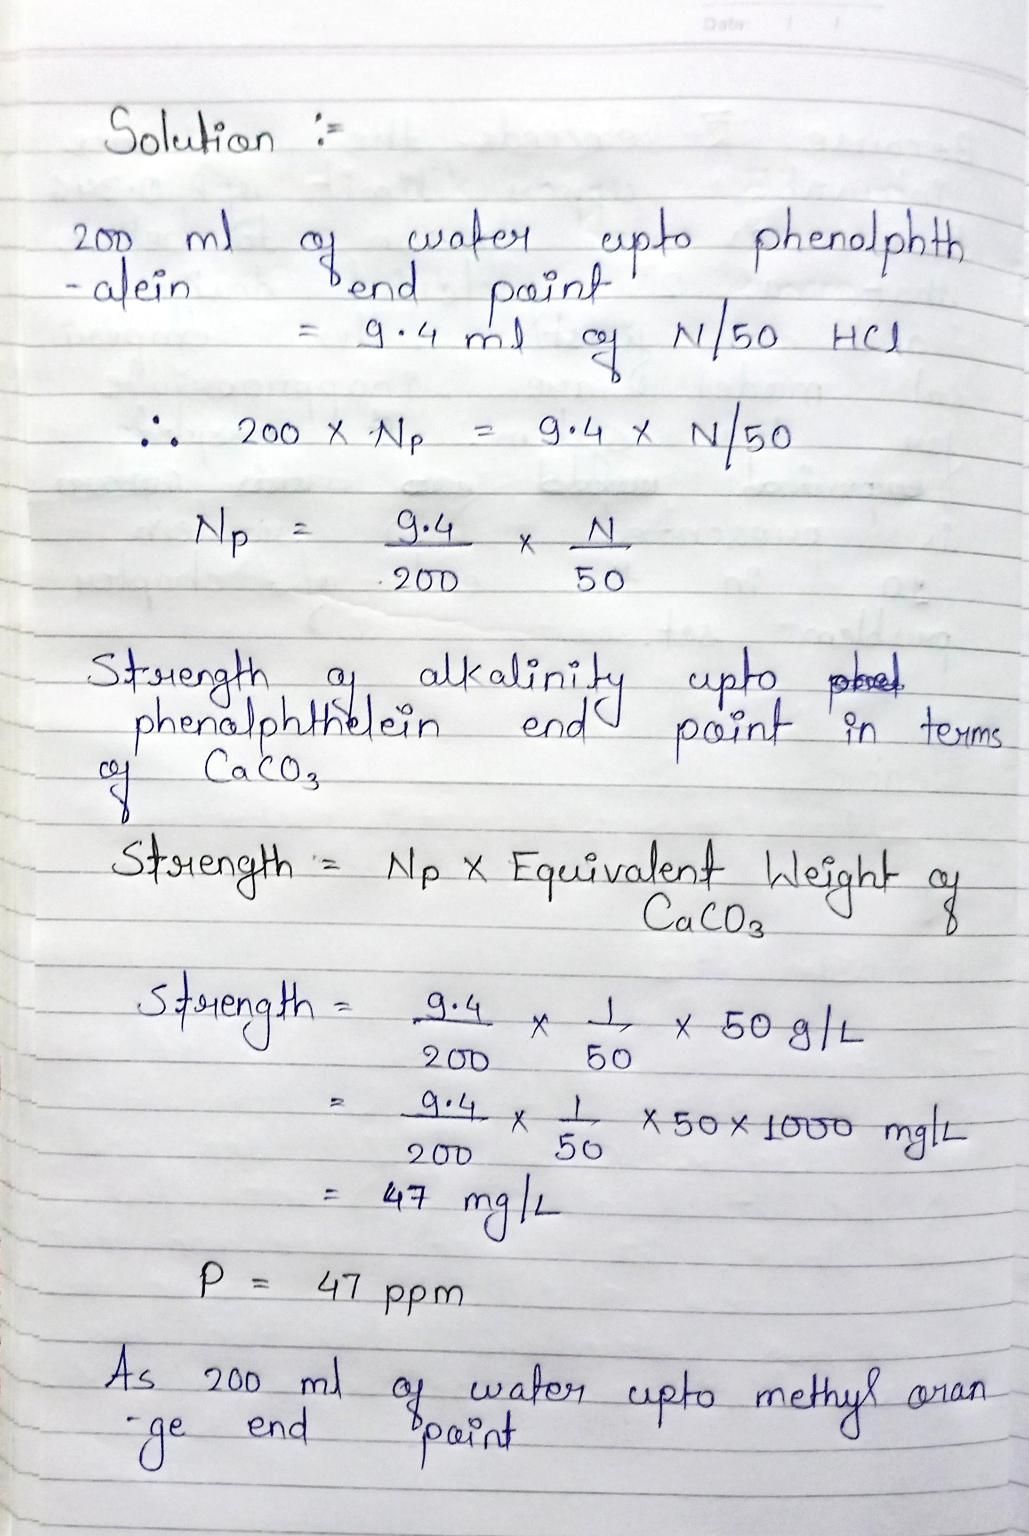 Date / /
Solution :=
200 ml of water upto phenolphth
-alein end point
= 9.4 ml of N/50 HCl
∴ 200 x Np = 9.4 x N/50
Np = 9.4/200 x N/50
Strength of alkalinity upto
phenolphthelein end point in terms
of CaCO3
Strength = Np x Equivalent Weight of
CaCO3
Strength = 9.4/200 x 1/50 x 50 g/L
= 9.4/200 x 1/50 x 50 x 1000 mg/L
= 47 mg/L
P = 47 ppm
As 200 ml of water upto methyl oran
-ge end point